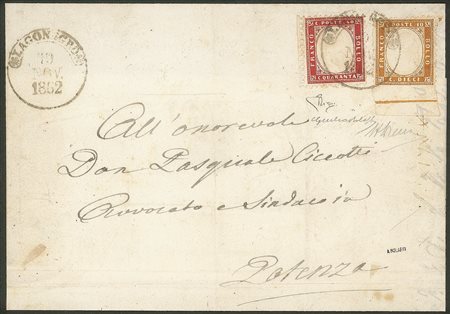 LAGONEGRO
19
NOV.
1862
C. POSTE 40
FRANCO
BOLLO
C. QUARANTA
C. POSTE 10
FRANCO
BOLLO
C. DIECI
All'onorevole
Don Pasquale Ciccotti
Avvocato e Sindaco in
Potenza
A. BOLAFFI